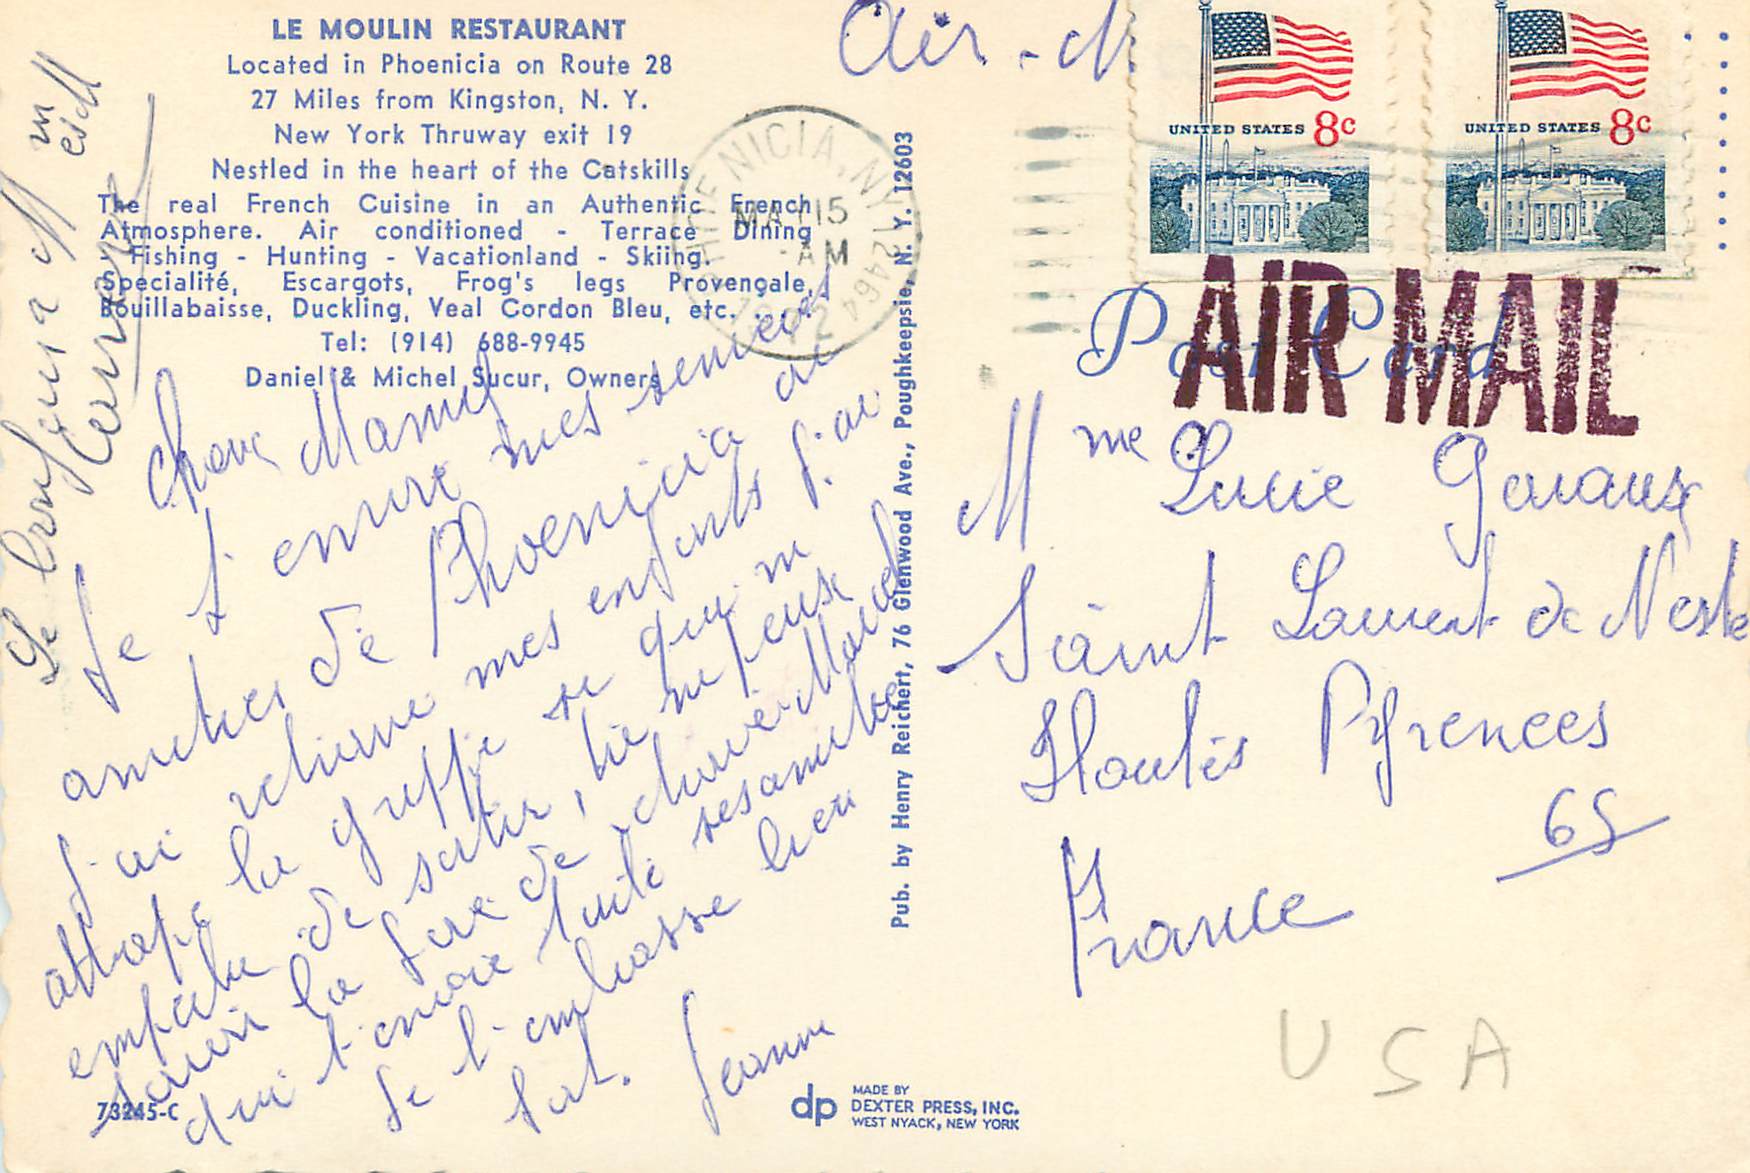 LE MOULIN RESTAURANT
Located in Phoenicia on Route 28
27 Miles from Kingston, N. Y.
New York Thruway exit 19
Nestled in the heart of the Catskills
The real French Cuisine in an Authentic French
Atmosphere. Air conditioned - Terrace Dining
Fishing - Hunting - Vacationland - Skiing.
Specialité, Escargots, Frog's legs Provençale,
Bouillabaisse, Duckling, Veal Cordon Bleu, etc. . . .
Tel: (914) 688-9945
Daniel & Michel Sucur, Owners
Chere Mamy
Je t'envoie mes sincères
amities de Phoenicia ou
j'ai retrouve mes enfants j'ai
attrape la grippe ce qui m
empeche de sortir, tu ne peux
savoir la joie de chere
qui t'envoie toute ses amities
Je t'embrasse bien
fort. Jeanne
Le bonjour a M
m
73245-C
Pub. by Henry Reichert, 76 Glenwood Ave., Poughkeepsie, N. Y. 12603
dp
MADE BY
DEXTER PRESS, INC.
WEST NYACK, NEW YORK
Air - M
PHOENICIA, NY 12464
MAY 15
AM
1972
UNITED STATES 8c
UNITED STATES 8c
AIR MAIL
Post Card
Mme Lucie
Saint Laurent de Neste
Hautes Pyrenees
65
France
USA